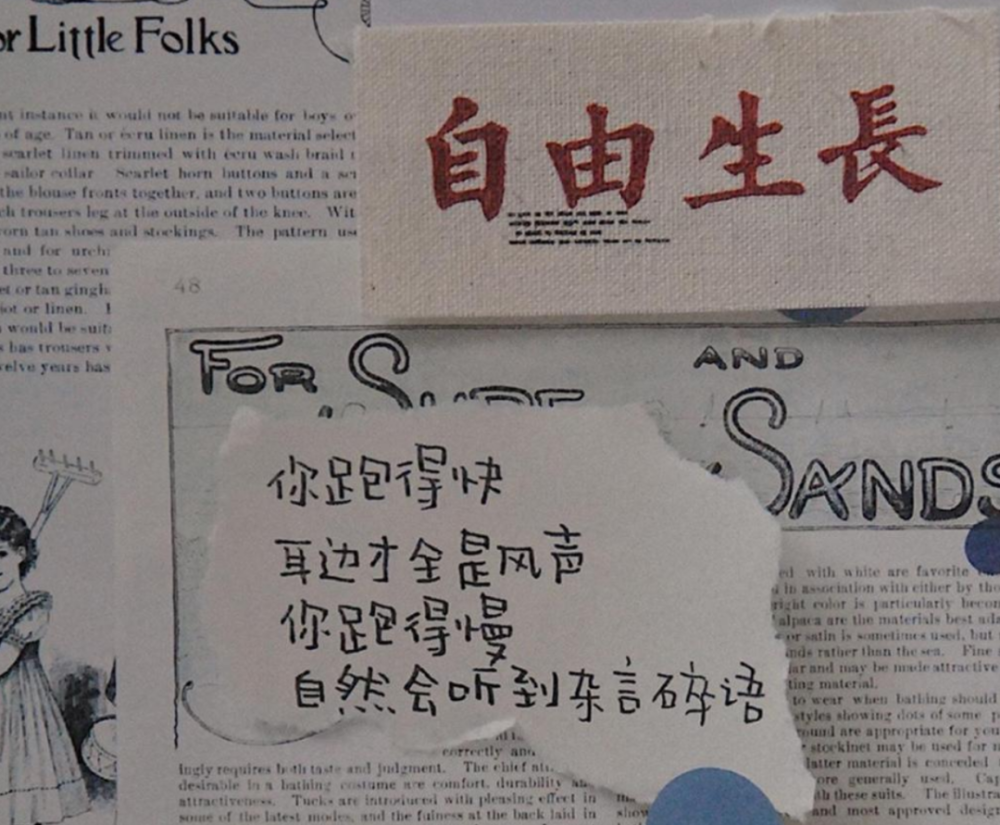 or Little Folks
nt instance it would not be suitable for boys o
of age. Tan or écru linen is the material select
scarlet linen trimmed with écru wash braid t
sailor collar Scarlet horn buttons and a
the blouse fronts together, and two buttons are
ch trousers leg at the outside of the knee. Wit
orn tan shoes and stockings. The pattern use
and for
three to seven
et or tan gingh
iot or linen.
would be suit
s has trousers
welve years has
自由生長
48
FOR
AND
SANDS
你跑得快
耳边才全是风声
你跑得慢
自然会听到杂言碎语
ed with white are favorite
in association with either by tho
right color is particularly becom
alpaca are the materials best ada
or satin is sometimes used, but
nds rather than the sea. Fine
ar and may be made attractive
ting material.
to wear when bathing should
styles showing dots of some p
ound are appropriate for you
stockinet may be used for
latter material is conceded
ore generally used. Cap
th these suits. The illustra
and most approved design
correctly and
ingly requires both taste and judgment. The chief
desirable in a bathing costume are comfort, durability
attractiveness. Tucks are introduced with pleasing effect in
some of the latest modes, and the fulness at the back laid in